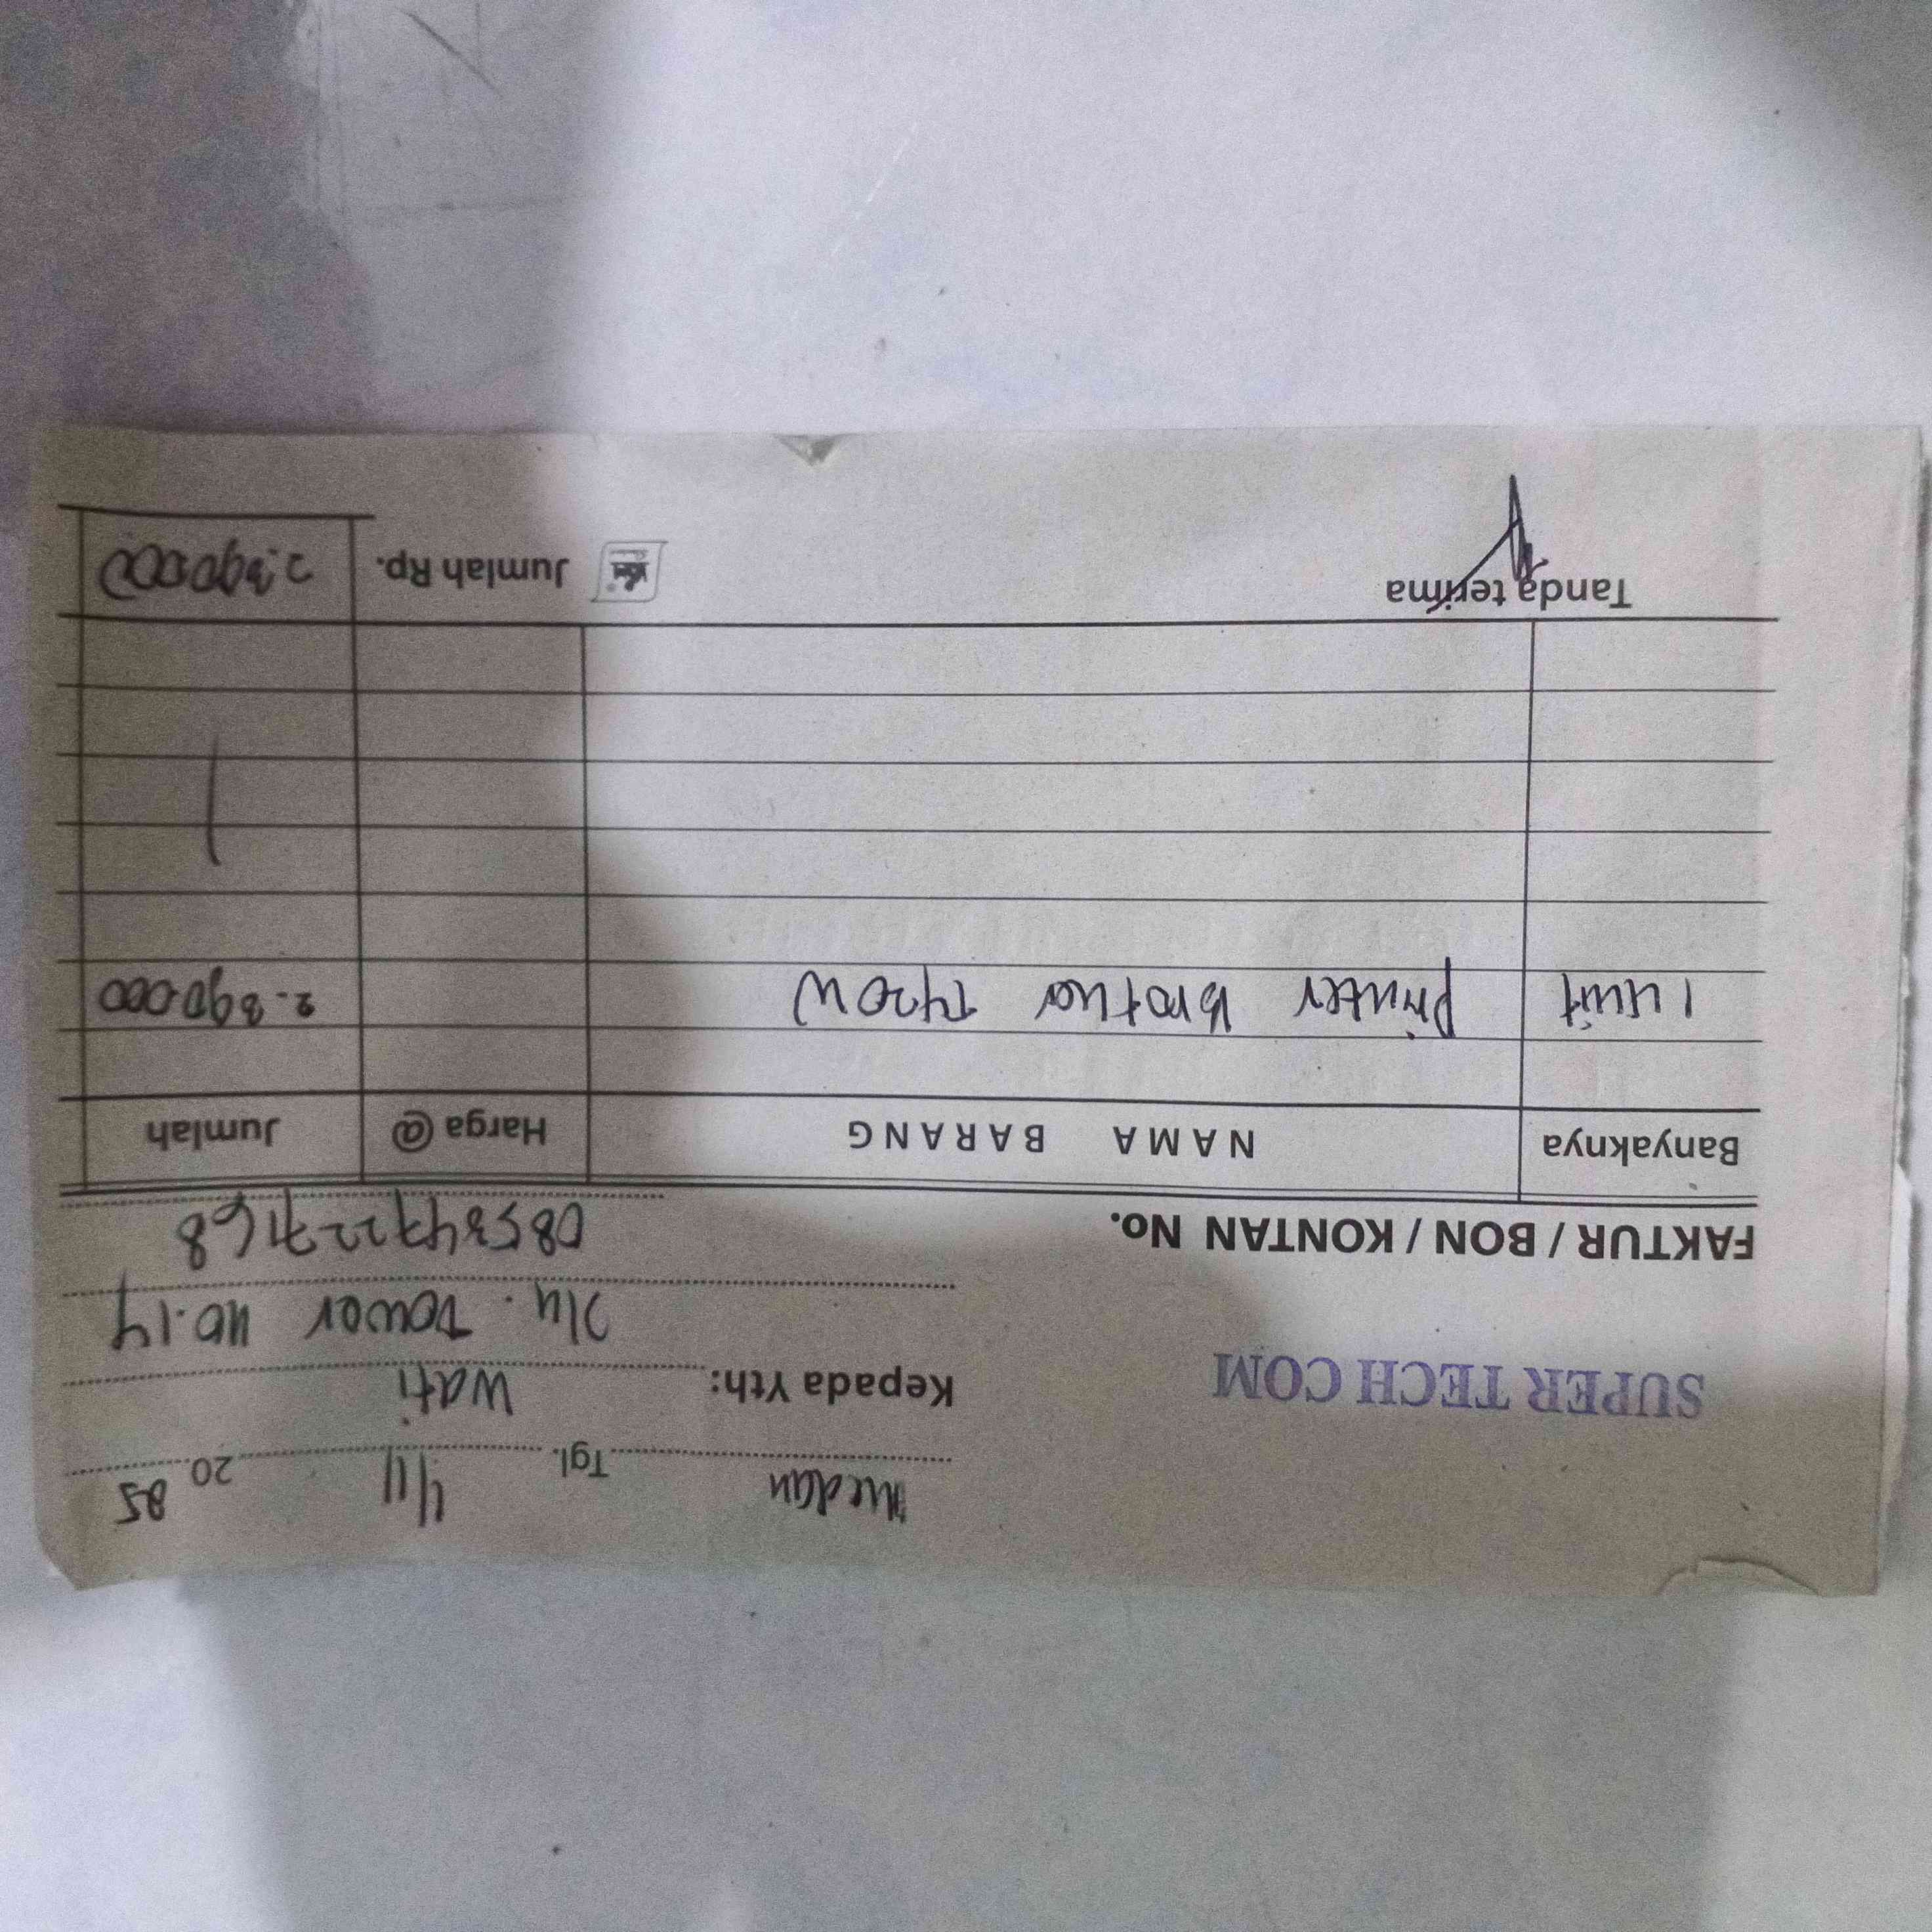 Medan Tgl. 4/11 20 25
SUPER TECH COM
Kepada Yth: Wati
Jln. Tower No.14
FAKTUR / BON / KONTAN No.
085347227168
Banyaknya NAMA BARANG Harga @ Jumlah
1 unit Printer brother T420W 2.390.000
Tanda terima Jumlah Rp. 2.390.000